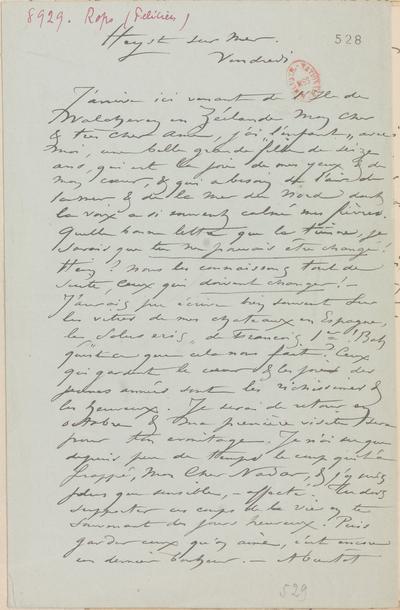 8929. Rops (Félicien)
528
Heyst sur Mer.
Vendredi
J'arrive ici venant de l'Ile de
Walcheren en Zélande mon cher
& très cher ami, j'ai "l'enfant" avec
moi, une belle grande fille de seize
ans, qui est la joie de mes yeux & de
mon cœur, & qui a besoin de l'air de
la mer & de la mer du Nord dont
la voix a si souvent calmé mes fièvres.
Quelle bonne lettre que la tienne, je
savais que tu ne pouvais être changé!
Hein? nous les connaissons tout de
suite, ceux qui doivent changer! –
J'aurais pu écrire bien souvent sur
les vitres de mes chateaux en Espagne,
le de François 1er! Bah
qu'est-ce que cela nous fait? Ceux
qui gardent le cœur & les joies des
jeunes années sont les richissimes &
les heureux. Je serai de retour en
octobre & ma première visite sera
pour ton ermitage. Je n'ai su que
depuis peu de temps le coup qui t'a
frappé, mon cher Nadar, & j'en
plus que sensible, – affecté. Tu dois
supporter ces coups de la vie en te
souvenant des jours heureux. Puis
garder ceux qu'on aime, c'est encore
un dernier bonheur. – A bientot
529